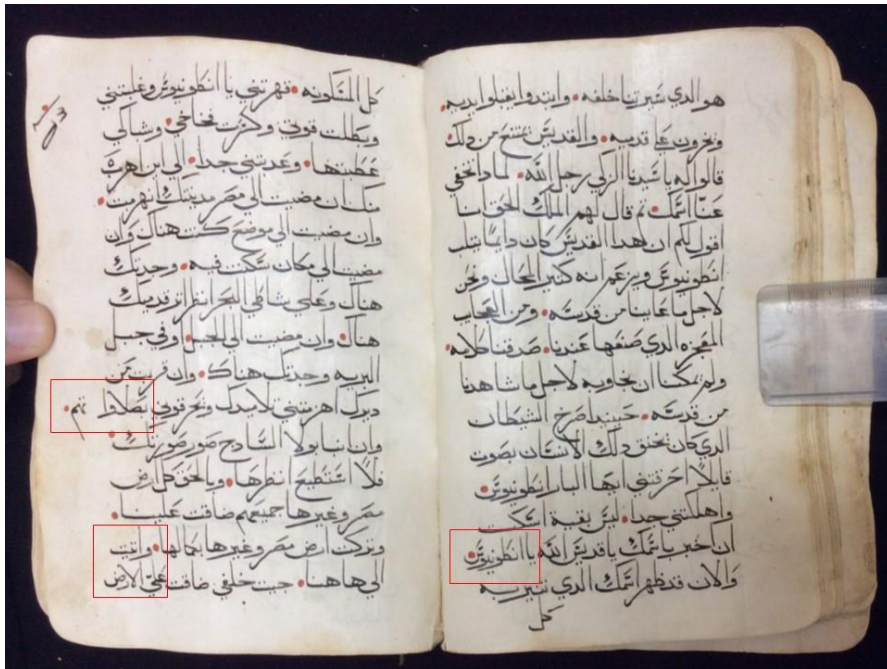 هو الدي شبرتنا خلفه • وابتدوا يقبلوا ايديه •
ويخرون على قدميه • والقديس يمتنع من دلك
قالوا له ياسيدنا الزكي رجل الله • لمادا تخفي
عنا اسمك • قال لهم الملك الحق انا
اقول لكم ان هدا القديس كان دايما يتلب
انطونيوس ويزعم انه كتير المحال ونحن
لاجل ما عاينا من قدسه • ومن العجايب
المعجزه الدي صنعها عندنا • صدقنا كلامه •
ولم يمكنا ان نجاوبه لاجل ما شاهدنا
من قدسه • حينيد اصرخ الشيطان
الدي كان يخنق دلك الانسان بصوت
قايلا احرقتني ايها البار انطونيوس •
واهلكتني جدا • ليس بقية اسكت
ان اخبر باسمك ياقديس الله يا انطونيوس •
والان قد ظهر اسمك الدي
كل
كل المسكونه • قهرتني يا انطونيوس وغلبتني
وبطلت قوتي وكسرت فخاخي • وشباكي
عطبتها • وعدبتني جدا • الي اين اهرب
منك ان مضيت الي مصر مدينتك انهزمت •
وان مضيت الي موضع كنت هناك وان
مضيت الي مكان سكنت فيه • وجدتك
هناك وعلي شاطي البحر انظر اتر قدميك
هناك • وان مضيت الي الجبل • وفي جبل
البريه وجدتك هناك • وان قربت من
ديرك اهزمتني تلاميدك وتحرقوني بصلاوا تهم •
وان انبا بولا السادج صور صورتك
فلا استطيع انظرها • وبالحق كل ارض
مصر وغيرها جميعهم ضاقت علينا •
وتركت ارض مصر وغيرها بكمالها • واتيت
الي هاهنا • جيت خلفي ضاقت علي الارض